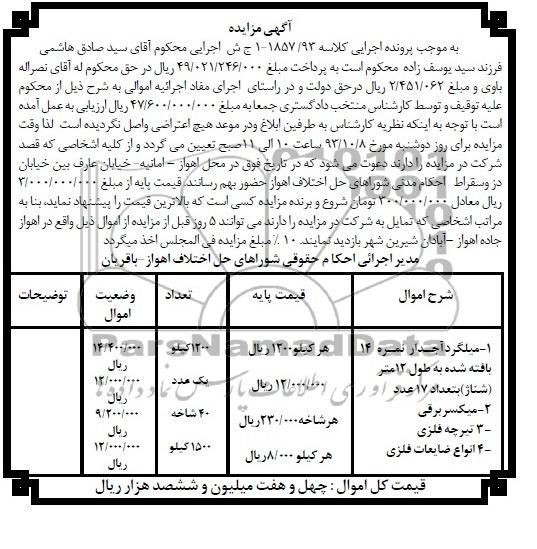 آگهی مزایده
به موجب پرونده اجرایی کلاسه ۱۸۵۷/۹۳-۱ ج ش اجرایی محکوم آقای سید صادق هاشمی
فرزند سید یوسف زاده محکوم است به پرداخت مبلغ ۴۹/۰۲۱/۲۴۶/۰۰۰ ریال در حق محکوم له آقای نصراله
باوی و مبلغ ۲/۴۵۱/۰۶۲ ریال درحق دولت و در راستای اجرای مفاد اجرائیه اموالی به شرح ذیل از محکوم
علیه توقیف و توسط کارشناس منتخب دادگستری جمعا به مبلغ ۴۷/۶۰۰/۰۰۰/۰۰۰ ریال ارزیابی به عمل آمده
است با توجه به اینکه نظریه کارشناس به طرفین ابلاغ ودر موعد هیچ اعتراضی واصل نگردیده است لذا وقت
مزایده برای روز دوشنبه مورخ ۹۳/۱۰/۸ ساعت ۱۰ الی ۱۱صبح تعیین می گردد و از کلیه اشخاصی که قصد
شرکت در مزایده را دارند دعوت می شود که در تاریخ فوق در محل اهواز – امانیه- خیابان عارف بین خیابان
دز وسقراط احکام مدنی شوراهای حل اختلاف اهواز حضور بهم رسانند. قیمت پایه از مبلغ ۳/۰۰۰/۰۰۰/۰۰۰
ریال معادل ۳۰۰/۰۰۰/۰۰۰ تومان شروع و برنده مزایده کسی است که بالاترین قیمت را پیشنهاد نماید، بنا به
مراتب اشخاصی که تمایل به شرکت در مزایده را دارند می توانند ۵ روز قبل از مزایده از اموال ذیل واقع در اهواز
جاده اهواز – آبادان شیرین شهر بازدید نمایند. ۱۰ ٪ مبلغ مزایده فی المجلس اخذ میگردد
مدیر اجرائی احکا م حقوقی شوراهای حل اختلاف اهواز-باقریان
شرح اموال قیمت پایه تعداد وضعیت اموال توضیحات
۱-میلگرد آجدار نمره ۱۴ هر کیلو ۱۲۰۰ریال ۱۲۰۰کیلو ۱۴/۴۰۰/۰۰۰ ریال
بافته شده به طول ۱۲متر
(شناژ)بتعداد ۱۷عدد
۲-میکسر برقی ۱۲/۰۰۰/۰۰۰ریال یک عدد ۱۲/۰۰۰/۰۰۰ ریال
-۳ تیرچه فلزی هرشاخه ۲۳۰/۰۰۰ریال ۴۰ شاخه ۹/۲۰۰/۰۰۰ ریال
-۴ انواع ضایعات فلزی هر کیلو ۸/۰۰۰ریال ۱۵۰۰کیلو ۱۲/۰۰۰/۰۰۰ ریال
قیمت کل اموال : چهل و هفت میلیون و ششصد هزار ریال
ParsNamadData